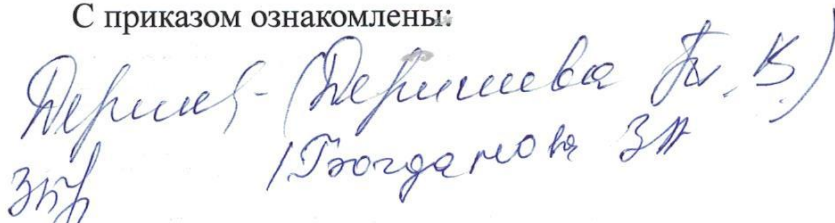 С приказом ознакомлены:
(Дершева Т. В.)
/Богданова ЗА